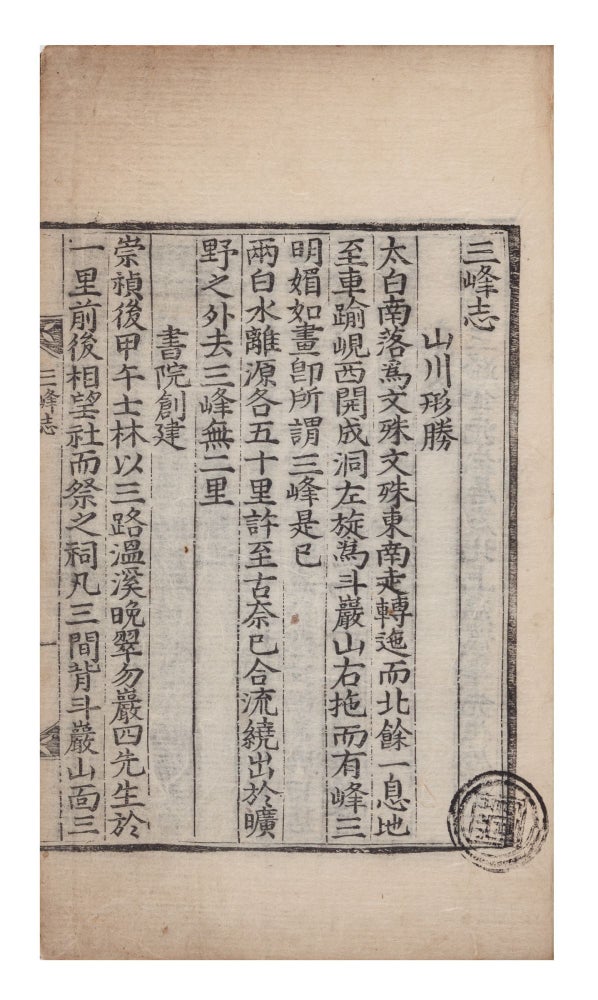 三峰志
山川形勝
太白南落爲文殊文殊東南走轉迤而北餘一息地
至車踰峴西開成洞左旋爲斗巖山右拖而有峰三
明媚如畫卽所謂三峰是已
兩白水離源各五十里許至古奈已合流繞出於曠
野之外去三峰無二里
書院創建
崇禎後甲午士林以三路溫溪晩翠勿巖四先生於
一里前後相望社而祭之祠凡三間背斗巖山面三
三峰志
一